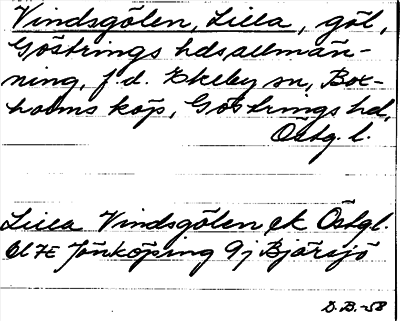 Vindsgölen, Lilla, göl,
Göstrings hdsallmän-
ning, f.d. Ekeby sn, Box-
holms köp, Göstrings hd,
Östg. l.
Lilla Vindsgölen ek Östgl.
bl 7E Jönköping 9j Bjärsjö
D.B. -58